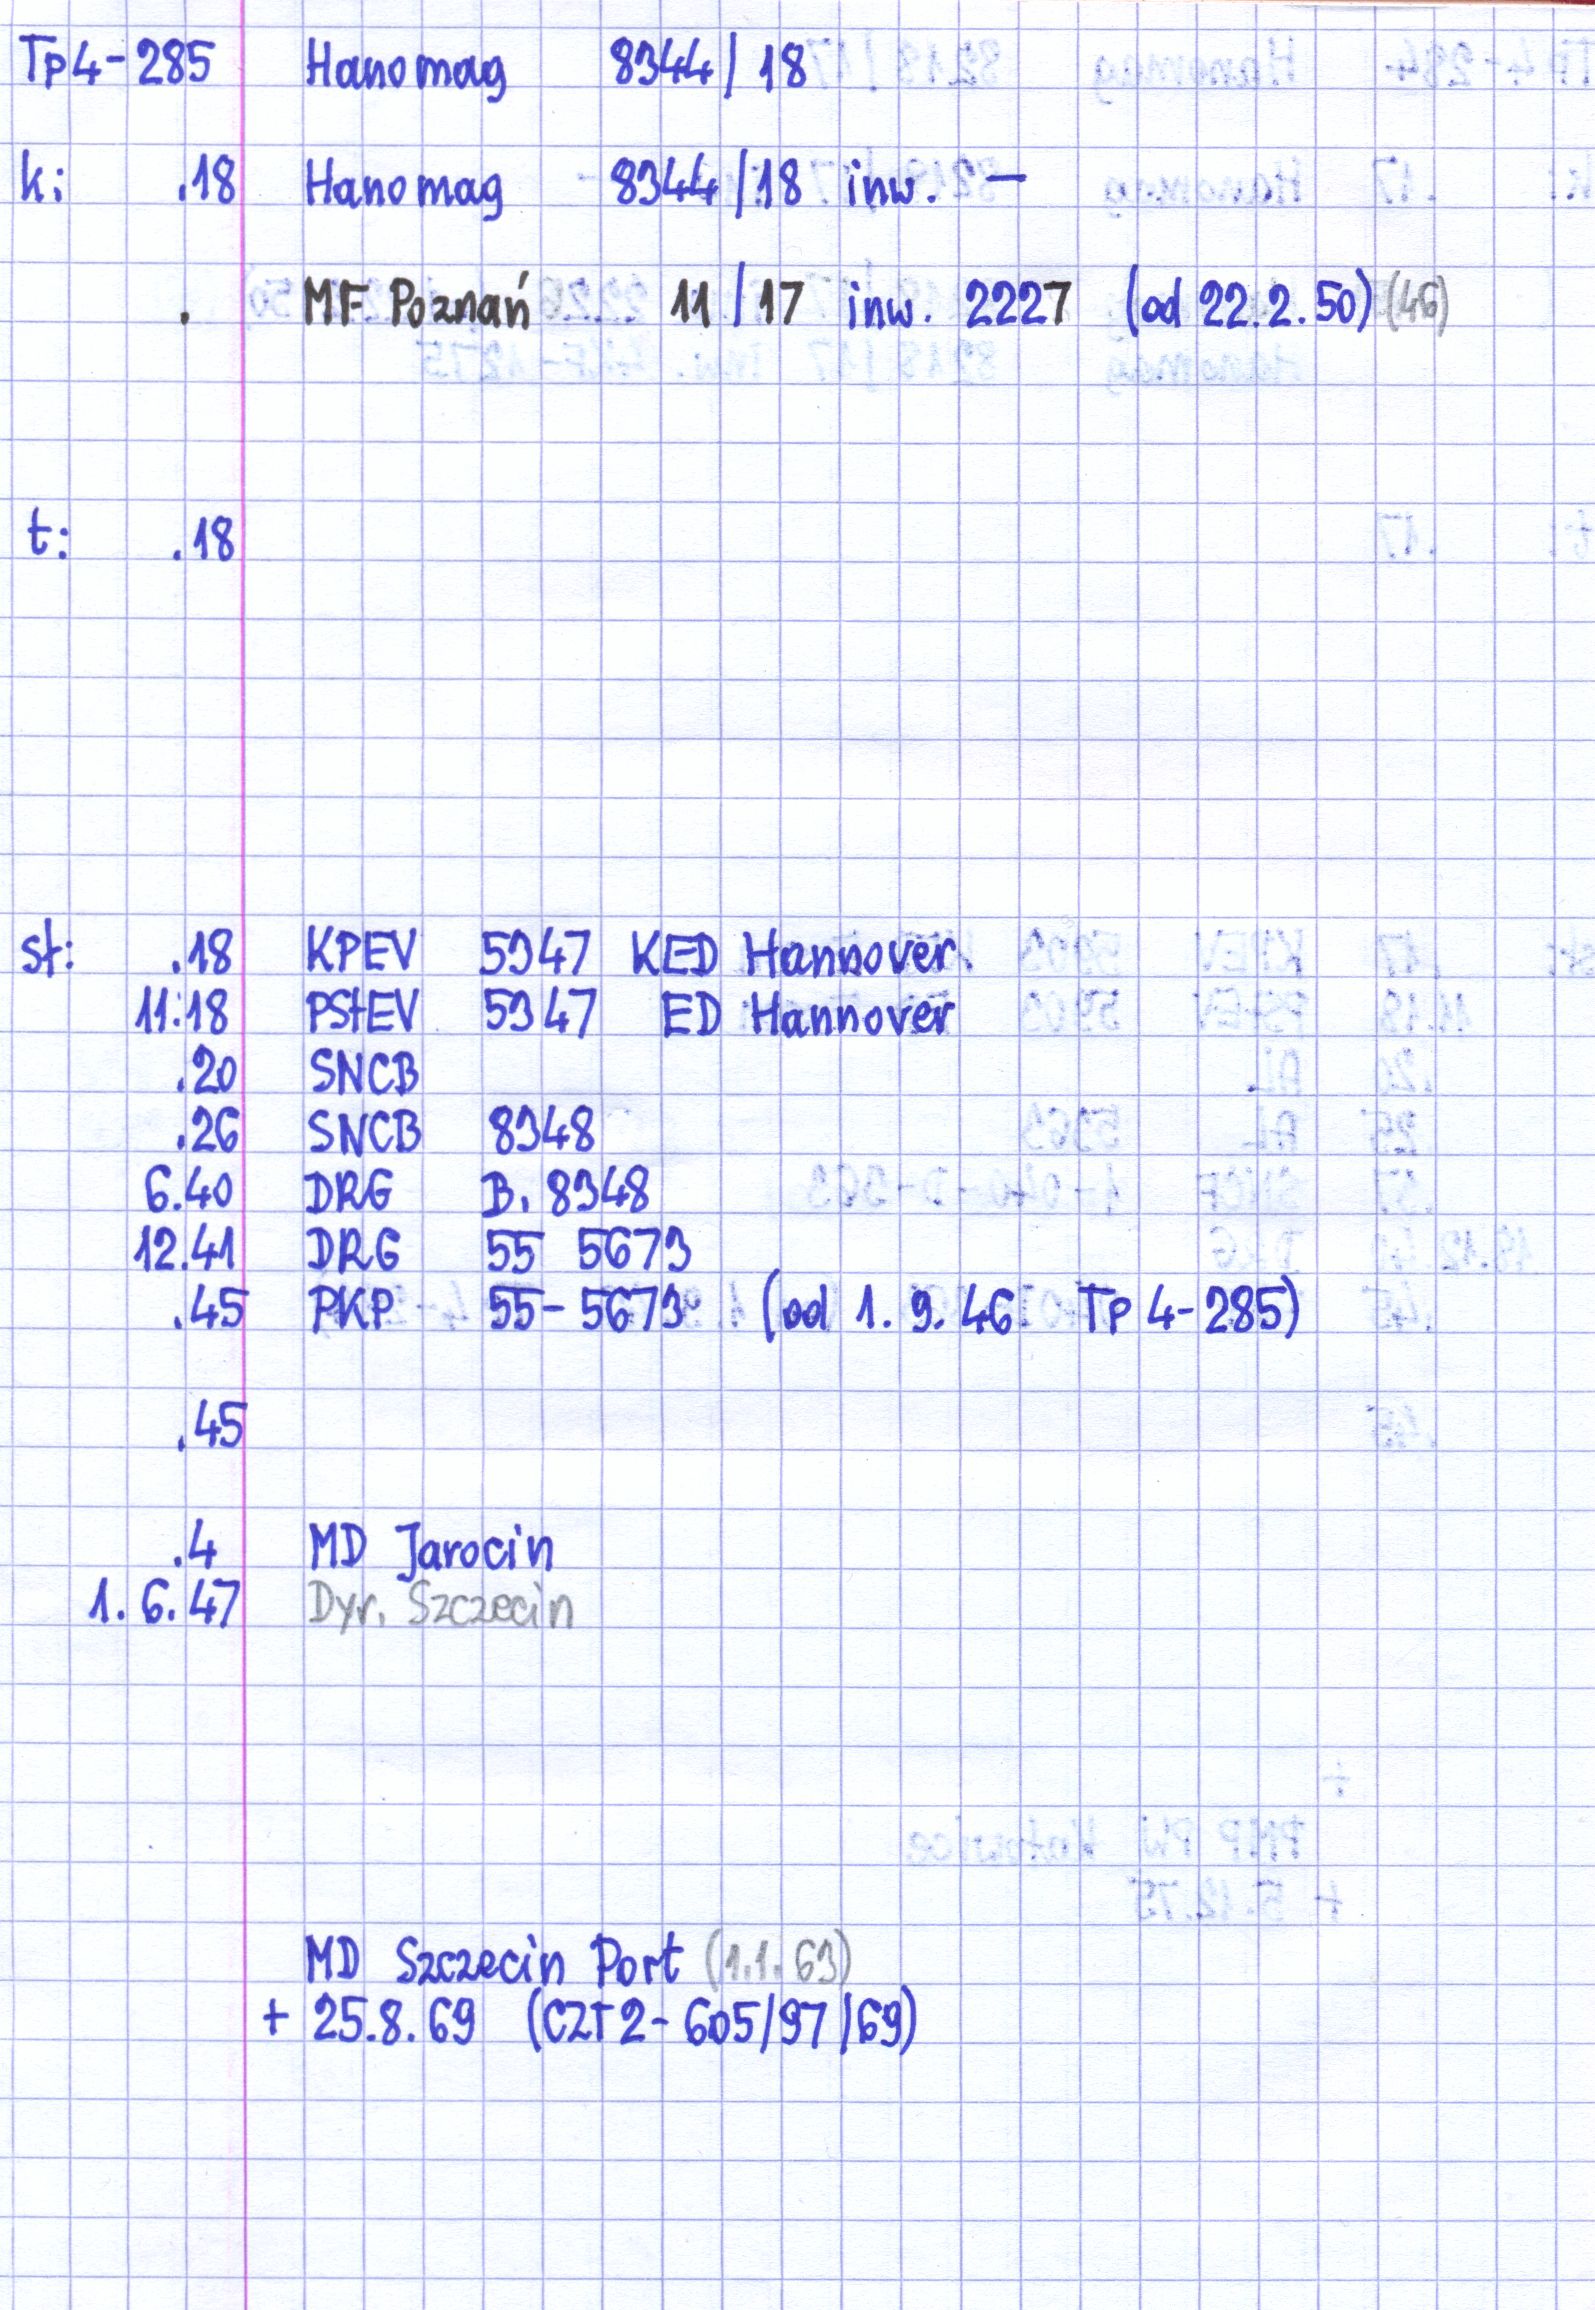 Tp4-285 Hanomag 8344/18
k: .18 Hanomag 8344/18 inw. —
. MF Poznań 11/17 inw. 2227 (od 22.2.50) (46)
t: .18
st: .18 KPEV 5347 KED Hannover
11.18 PStEV 5347 ED Hannover
.20 SNCB
.26 SNCB 8348
6.40 DRG B. 8348
12.41 DRG 55 5673
.45 PKP 55-5673 (od 1.9.46 Tp4-285)
.45
.4 MD Jarocin
1.6.47 Dyr. Szczecin
MD Szczecin Port (1.1.63)
+ 25.8.69 (CZT2-605/37/69)